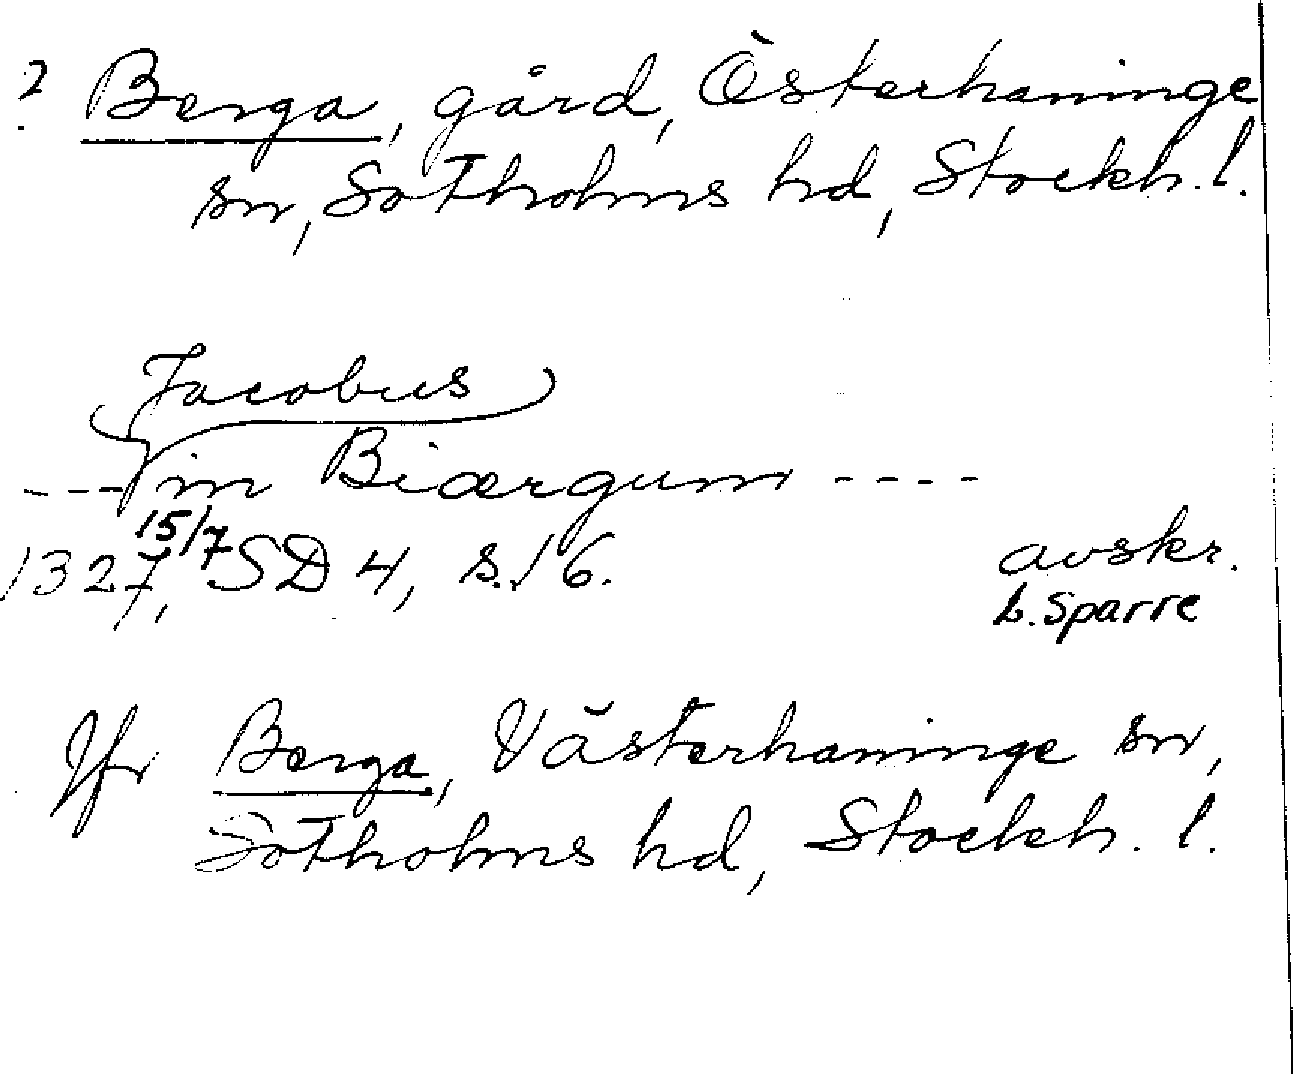 ? Berga, gård, Österhaninge
sn, Sotholms hd, Stockh. l.
Jacobus
--- in Biærgum ----
1327, 15/7 SD 4, s. 16.
avskr.
L. Sparre
Jfr Berga, Västerhaninge sn,
Sotholms hd, Stockh. l.